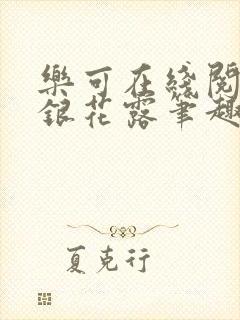 樂可在綫閱
銀花露筆趣
夏克行